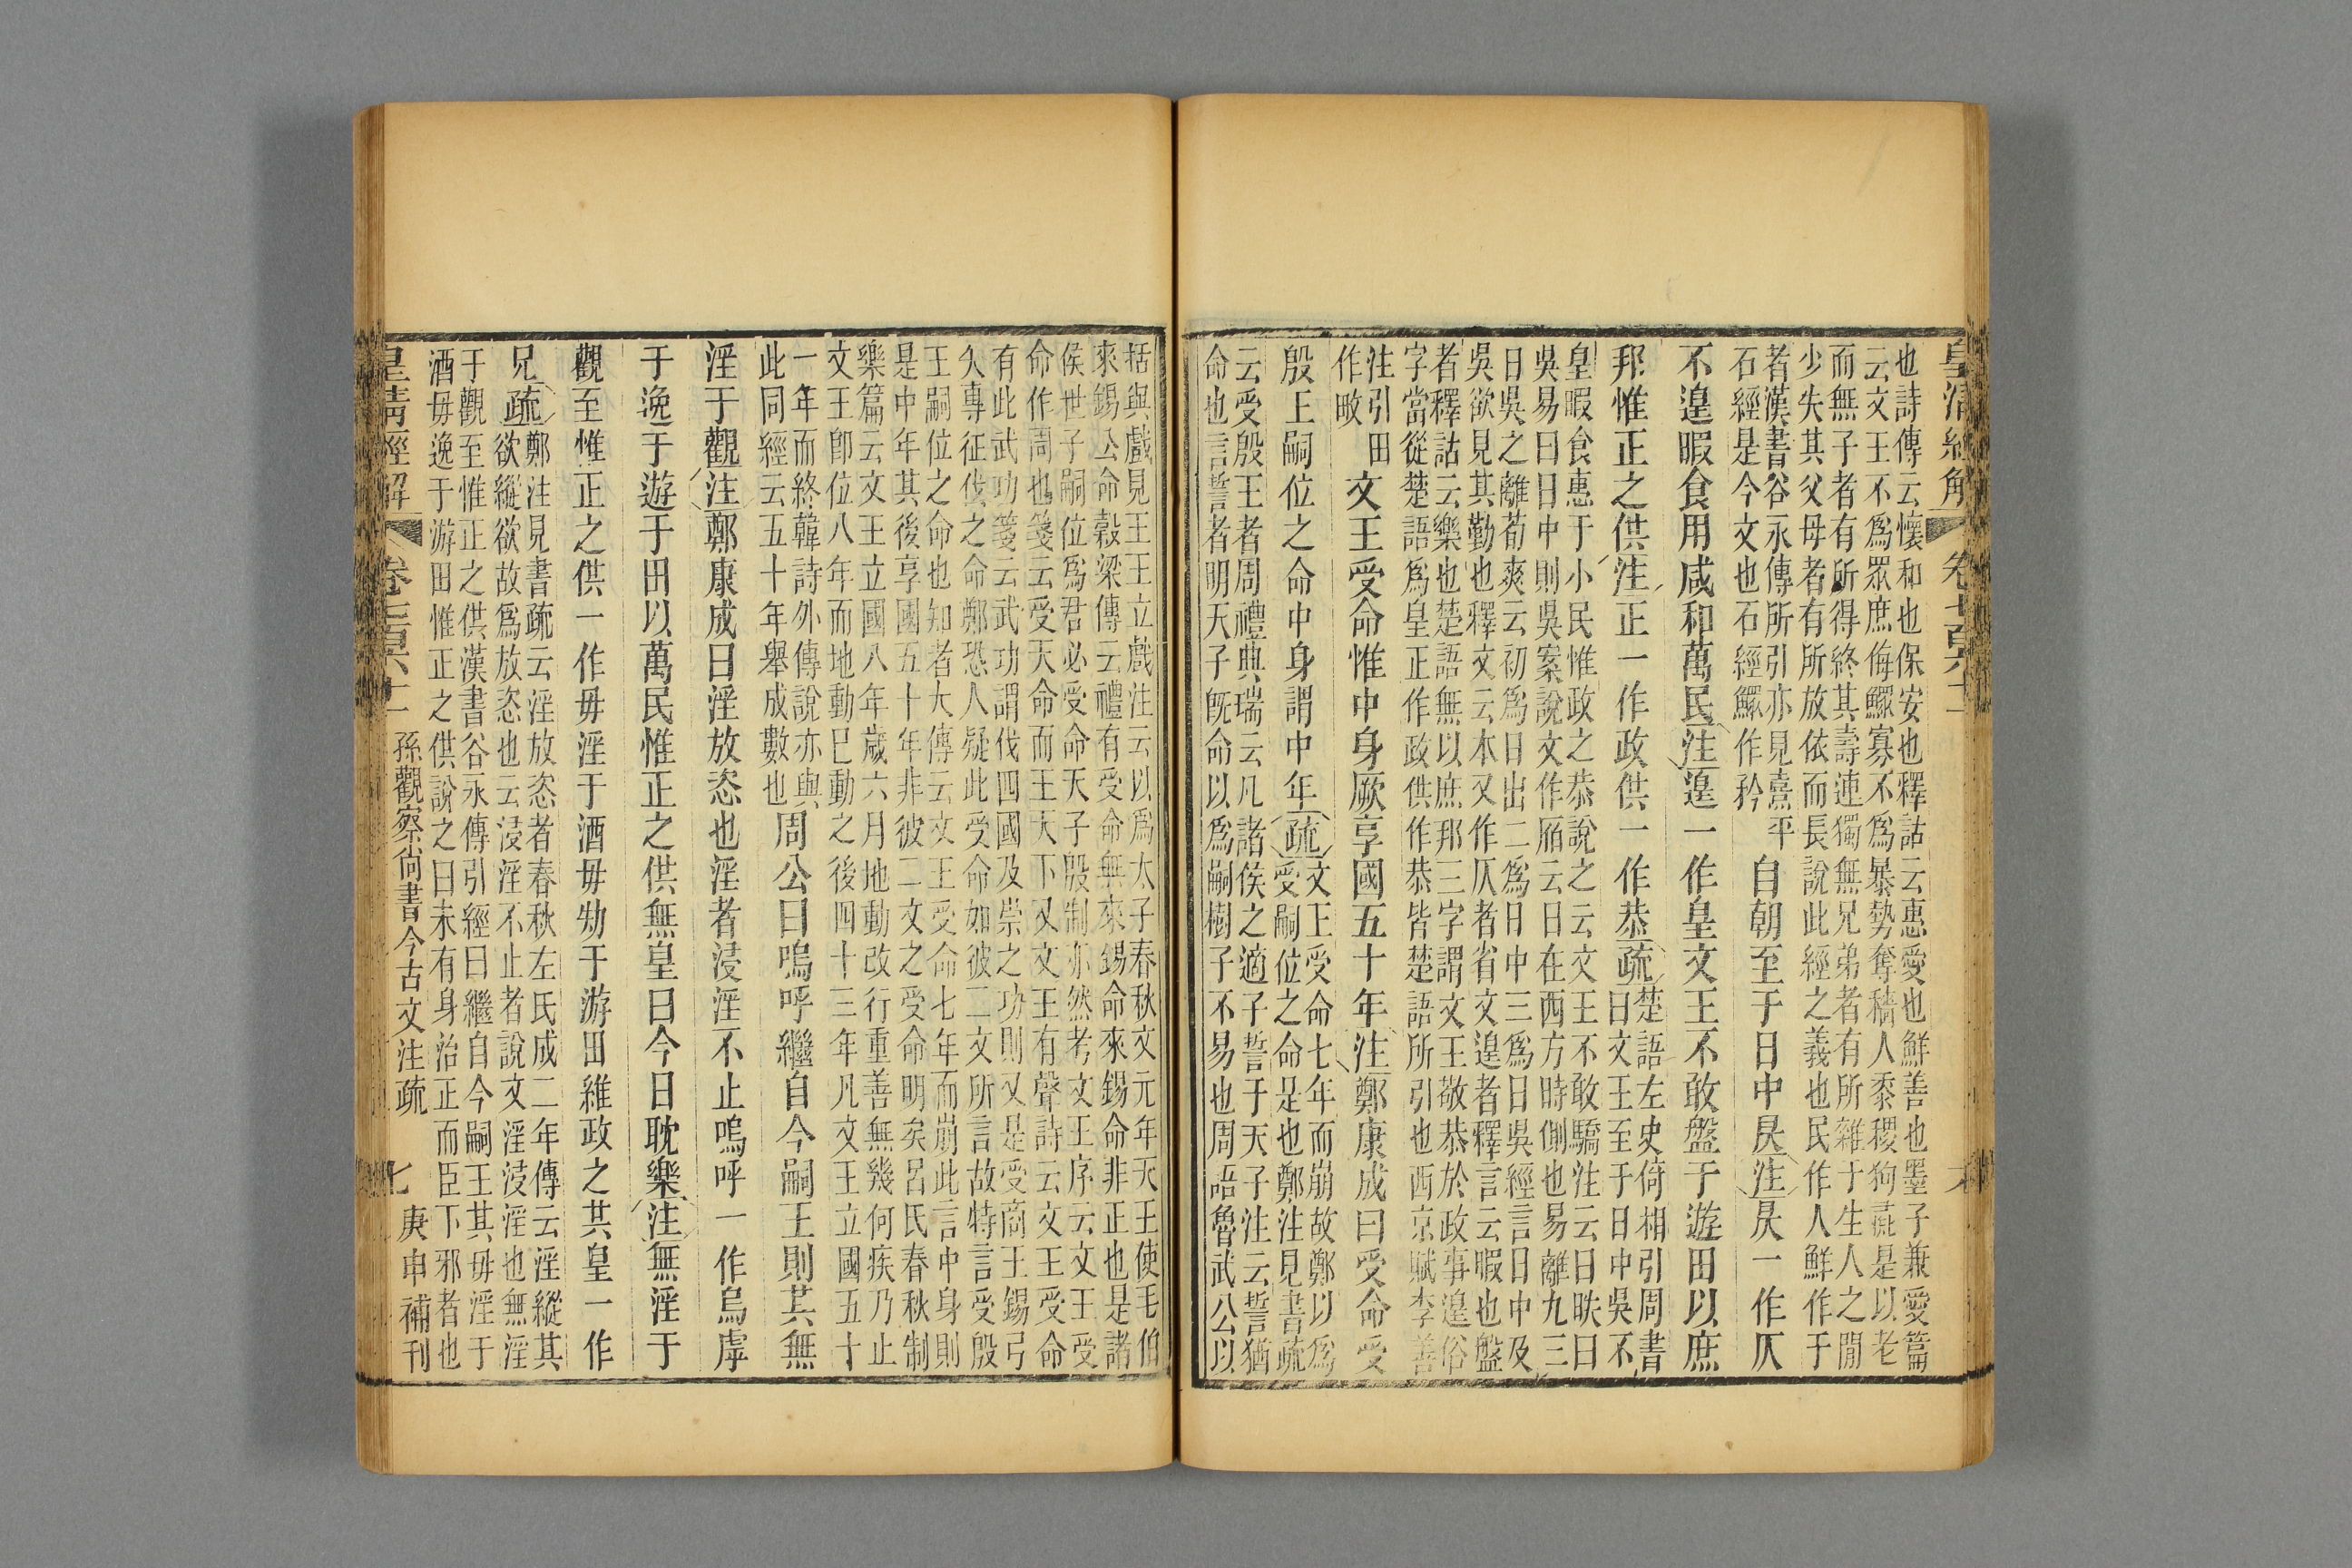 皇清經解 卷七百六十一 六
也詩傳云懷和也保安也釋詁云惠愛也鮮善也墨子兼愛篇
云文王不爲眾庶侮鰥寡不爲暴勢奪穡人黍稷狗彘是以老
而無子者有所得終其壽連獨無兄弟者有所雜于生人之閒
少失其父母者有所放依而長說此經之義也民作人鮮作于
者漢書谷永傳所引亦見熹平
石經是今文也石經鰥作矜
自朝至于日中昃注昃一作仄
不遑暇食用咸和萬民注遑一作皇文王不敢盤于遊田以庶
邦惟正之供注正一作政供一作恭疏
楚語左史倚相引周書
曰文王至于日中吳不
皇暇食惠于小民惟政之恭說之云文王不敢驕注云日昳曰
吳易曰日中則吳案說文作𣅳云日在西方時側也易離九三
日吳之離荀爽云初爲日出二爲日中三爲日吳經言日中及
吳欲見其勤也釋文云本又作仄者省文遑者釋言云暇也盤
者釋詁云樂也楚語無以庶邦三字謂文王敬恭於政事遑俗
字當從楚語爲皇正作政供作恭皆楚語所引也西京賦李善
注引田
作畋
文王受命惟中身厥享國五十年注鄭康成曰受命受
殷王嗣位之命中身謂中年疏
文王受命七年而崩故鄭以爲
受嗣位之命是也鄭注見書疏
云受殷王者周禮典瑞云凡諸侯之適子誓于天子注云誓猶
命也言誓者明天子旣命以爲嗣樹子不易也周語魯武公以
括與戲見王王立戲注云以爲太子春秋文元年天王使毛伯
來錫公命穀梁傳云禮有受命無來錫命來錫命非正也是諸
侯世子嗣位爲君必受命天子殷制亦然考文王序云文王受
命作周也箋云受天命而王天下又文王有聲詩云文王受命
有此武功箋云武功謂伐四國及崇之功則又是受商王錫弓
久專征伐之命鄭恐人疑此受命如彼二文所言故特言受殷
王嗣位之命也知者大傳云文王受命七年而崩此言中身則
是中年其後享國五十年非彼二文之受命明矣呂氏春秋制
樂篇云文王立國八年歲六月地動改行重善無幾何疾乃止
文王卽位八年而地動已動之後四十三年凡文王立國五十
一年而終韓詩外傳說亦與
此同經云五十年舉成數也
周公曰嗚呼繼自今嗣王則其無
淫于觀注鄭康成曰淫放恣也淫者浸淫不止嗚呼一作烏虖
于逸于遊于田以萬民惟正之供無皇曰今日耽樂注無淫于
觀至惟正之供一作毋淫于酒毋劮于游田維政之共皇一作
兄疏
鄭注見書疏云淫放恣者春秋左氏成二年傳云淫縱其
欲縱欲故爲放恣也云浸淫不止者說文淫浸淫也無淫
于觀至惟正之供漢書谷永傳引經曰繼自今嗣王其毋淫于
酒毋逸于游田惟正之供說之曰未有身治正而臣下邪者也
皇清經解 卷七百六十一 孫觀察尙書今古文注疏 七 庚申補刊